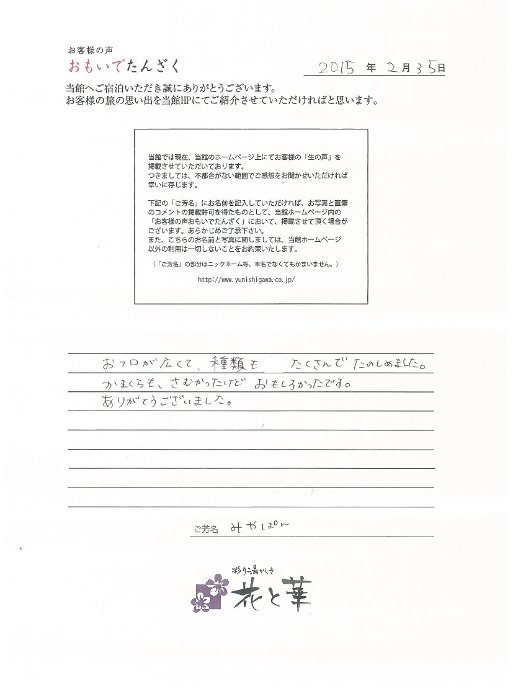 お客様の声
おもいでたんざく
2015年2月35日
当館へご宿泊いただき誠にありがとうございます。
お客様の旅の思い出を当館HPにてご紹介させていただければと思います。
当館では現在、当館のホームページ上にてお客様の「生の声」を
掲載させていただいております。
つきましては、不都合がない範囲でご感想をお聞かせいただければ
幸いに存じます。
下記の「ご芳名」にお名前を記入していただければ、お写真と直筆
のコメントの掲載許可を得たものとして、当館ホームページ内の
「お客様の声おもいでたんざく」において、掲載させて頂く場合が
ございます。あらかじめご了承下さい。
また、こちらのお名前と写真に関しましては、当館ホームページ
以外の利用は一切しないことをお約束いたします。
(「ご芳名」の部分はニックネーム等、本名でなくてもかまいません。)
http://www.yunishigawa.co.jp/
おフロが広くて、種類も たくさんで たのしめました。
かまくらも、さむかったけど おもしろかったです。
ありがとうございました。
ご芳名 みやぱー
花と華